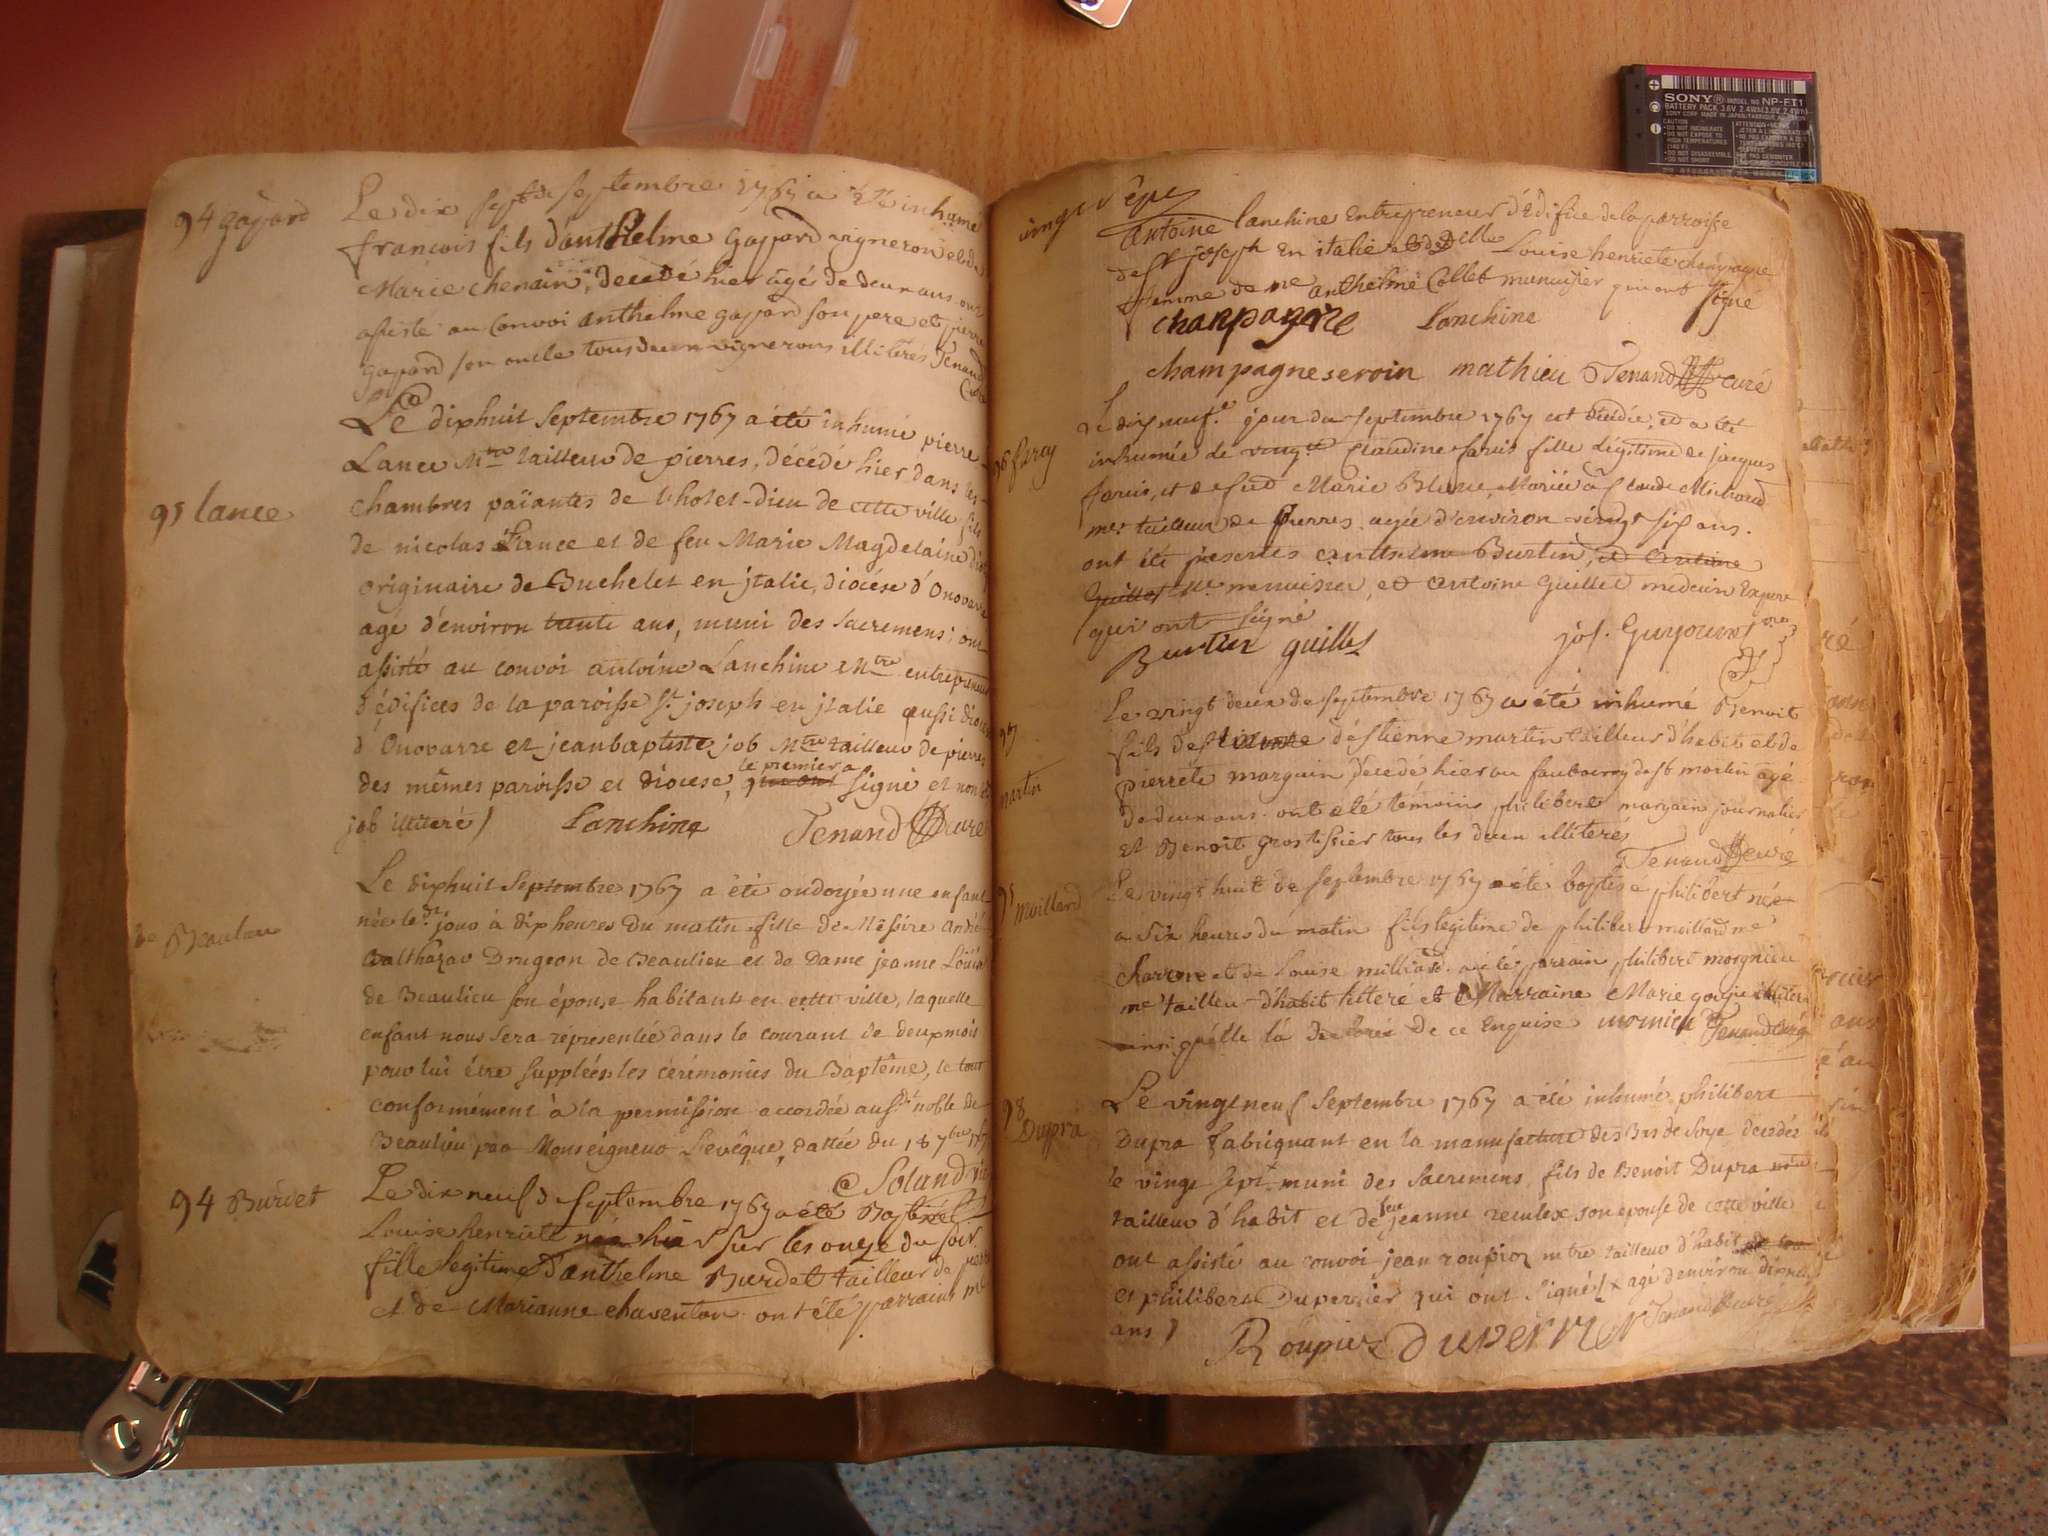 94 gajard
Le dix sept de septembre 1767 a été inhumé
francois fils d'anthelme Gajard vigneron et de
Marie chenain, decedé hier agé de deux ans ont
assisté au convoi anthelme gajard son pere et pierre
gajard son oncle tous deux vignerons illiterés Tenand
curé
95 lance
Le dixhuit Septembre 1767 a été inhumé pierre
Lance Mtre tailleur de pierres, décédé hier dans les
chambres païantes de l'hotel-dieu de cette ville fils
de nicolas Lance et de feu Marie Magdelaine
originaire de Buchelet en jtalie, diocése d'Onovarre
agé d'environ trente ans, muni des sacremens; ont
assisté au convoi antoine Lanchine Mtre entrepreneur
d'édifices de la paroisse St. joseph en jtalie aussi diocese
d'Onovarre et jeanbaptiste job Mtre tailleur de pierres
des mêmes paroisse et diocese, le premier a
qui ont signé et non le
job illiteré
Lanchina Tenand curé
De Beaulieu
Le dixhuit Septembre 1767 a été ondoyée une enfant
née le dt. jour à dix heures du matin fille de Messire André
Balthazar Drugeon de Beaulieu et de Dame jeanne Louise
de Beaulieu son épouse habitants en cette ville, laquelle
enfant nous sera réprésentée dans le courant de deux mois
pour lui être suppléés les cérémonies du Baptême, le tout
conformément à la permission accordée ausdt noble de
Beaulieu par Monseigneur L'evêque, dattée du 18 7bre 1767
Soland vic
94 Burdet
Le dix neuf de septembre 1767 a été Baptisé
Louise henriette née hier sur les onze du soir
fille legitime d'anthelme Burdet tailleur de pierre
et de Marianne chaventon ont été parrain mr
antoine lanchine Entrepreneur d'Edifice de la parroisse
de st joseph En italie et delle Louise henriete champagne
femme de me anthelme Collet menuisier qui ont signé
champagne Lanchina
champagne seroin mathieu Tenand curé
96 farcy
Le dix neuf.e jour du septembre 1767 est décédée, et a été
inhumée le vingt Claudine faruis fille légitime de jacques
faruis, et de feue Marie Blanc, Mariée à Claude Michoud
me. tailleur de pierres agée d'environ vingt six ans.
ont été présents anthelme Burtin, et Antoine
Guillot me. menuisier, et Antoine Guillet medecin Expert
qui ont signé
Burtier guillet jos. Guyonnet
97
martin
Le vingt deux de septembre 1767 a été inhumé Benoit
fils d'estienne martin tailleur d'habit et de
pierrete marguin décedé hier au faubourg de st martin agé
de deux ans. ont été témoins philibert margain journalier
et Benoit grostissier tous les deux illiterés
Tenand curé
95 Moillard
Le vingt huit de septembre 1767 a été baptisé philibert né
a six heures du matin fils legitime de philibert moillard me
charron et de Louise milliard. a été parrain philibert morgnieu
me tailleur d'habit litteré et Marraine Marie goujeu illitere
ainsi qu'elle la declaré de ce Enquise mornieu Tenand curé
98
Dupra
Le vingt neuf Septembre 1767 a été inhumé philibert
Dupra fabriquant en la manufacture des Bas de soye decedé
le vingt sept muni des sacremens fils de Benoit Dupra mtre
tailleur d'habit et de feue jeanne reculex son epouse de cette ville
ont assisté au convoi jean roupiez mtre tailleur d'habit
et philibert Duperrier qui ont signé / x agé d'environ
ans /
Roupiez Tenand curé
SONY® MODEL NO. NP-FT1
BATTERY PACK 3.6V 2.4Wh
CAUTION
•DO NOT INCINERATE
•DO NOT EXPOSE TO
HIGH TEMPERATURES
(140°F)
•DO NOT DISASSEMBLE
•DO NOT SHORT